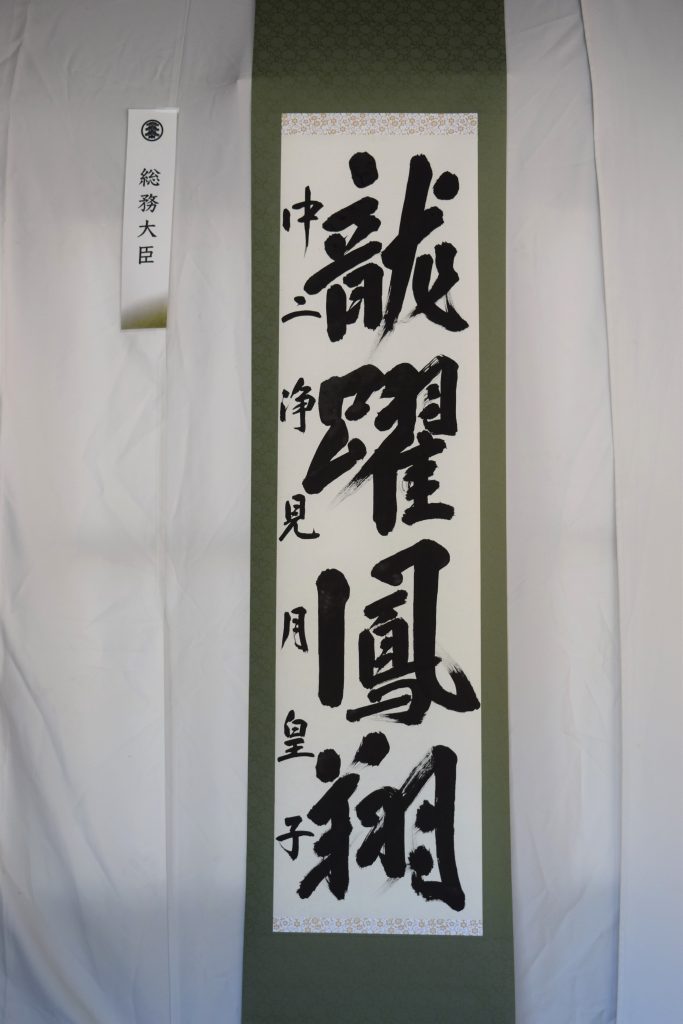 龍躍鳳翔
中二浄見月皇子
総務大臣